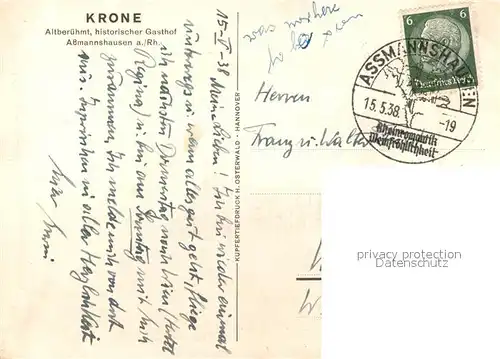 KRONE
Altberühmt, historischer Gasthof
Aßmannshausen a./Rh.
15-V-38
Meine Lieben! Ich bin wieder einmal
unterwegs u. wenn alles gut geht, fliege
ich nächsten Donnerstag nach Wien (Hotel
Regina) u. bin am Sonntag mit Euch
zusammen. Ich melde mich von dort
aus. Inzwischen in aller Herzlichkeit
KUPFERTIEFDRUCK H. OSTERWALD - HANNOVER
Herren
Franz u. Walter
6
ASSMANNSHAUSEN
15.5.38.-19
Rheinromantik
Weinfröhlichkeit
privacy protection
Datenschutz